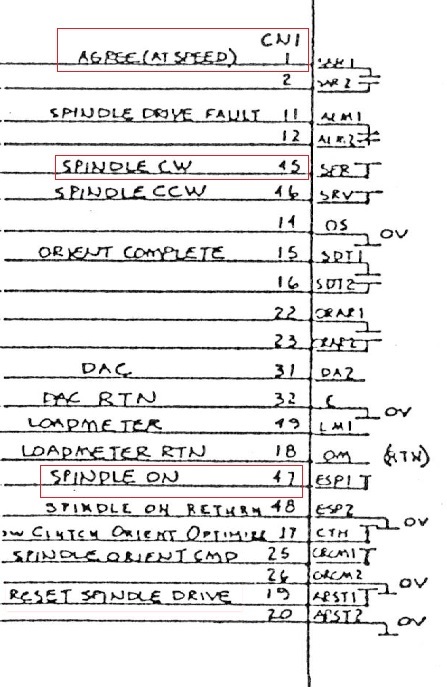 CN1
AGREE (AT SPEED) 1 SAR1
2 SAR2
SPINDLE DRIVE FAULT 11 ALM1
12 ALM2
SPINDLE CW 45 SFR
SPINDLE CCW 46 SRV
14 OS
0V
ORIENT COMPLETE 15 SDT1
16 SDT2
22 ORAR1
23 ORAR2
DAC 31 DA2
DAC RTN 32 E
0V
LOADMETER 49 LM1
LOADMETER RTN 18 OM (RTN)
SPINDLE ON 47 ESP1
SPINDLE ON RETURN 48 ESP2
0V
OW CLUTCH ORIENT OPTIMIZE 17 CTH
SPINDLE ORIENT CMD 25 ORCM1
26 ORCM2
0V
RESET SPINDLE DRIVE 19 ARST1
20 ARST2
0V